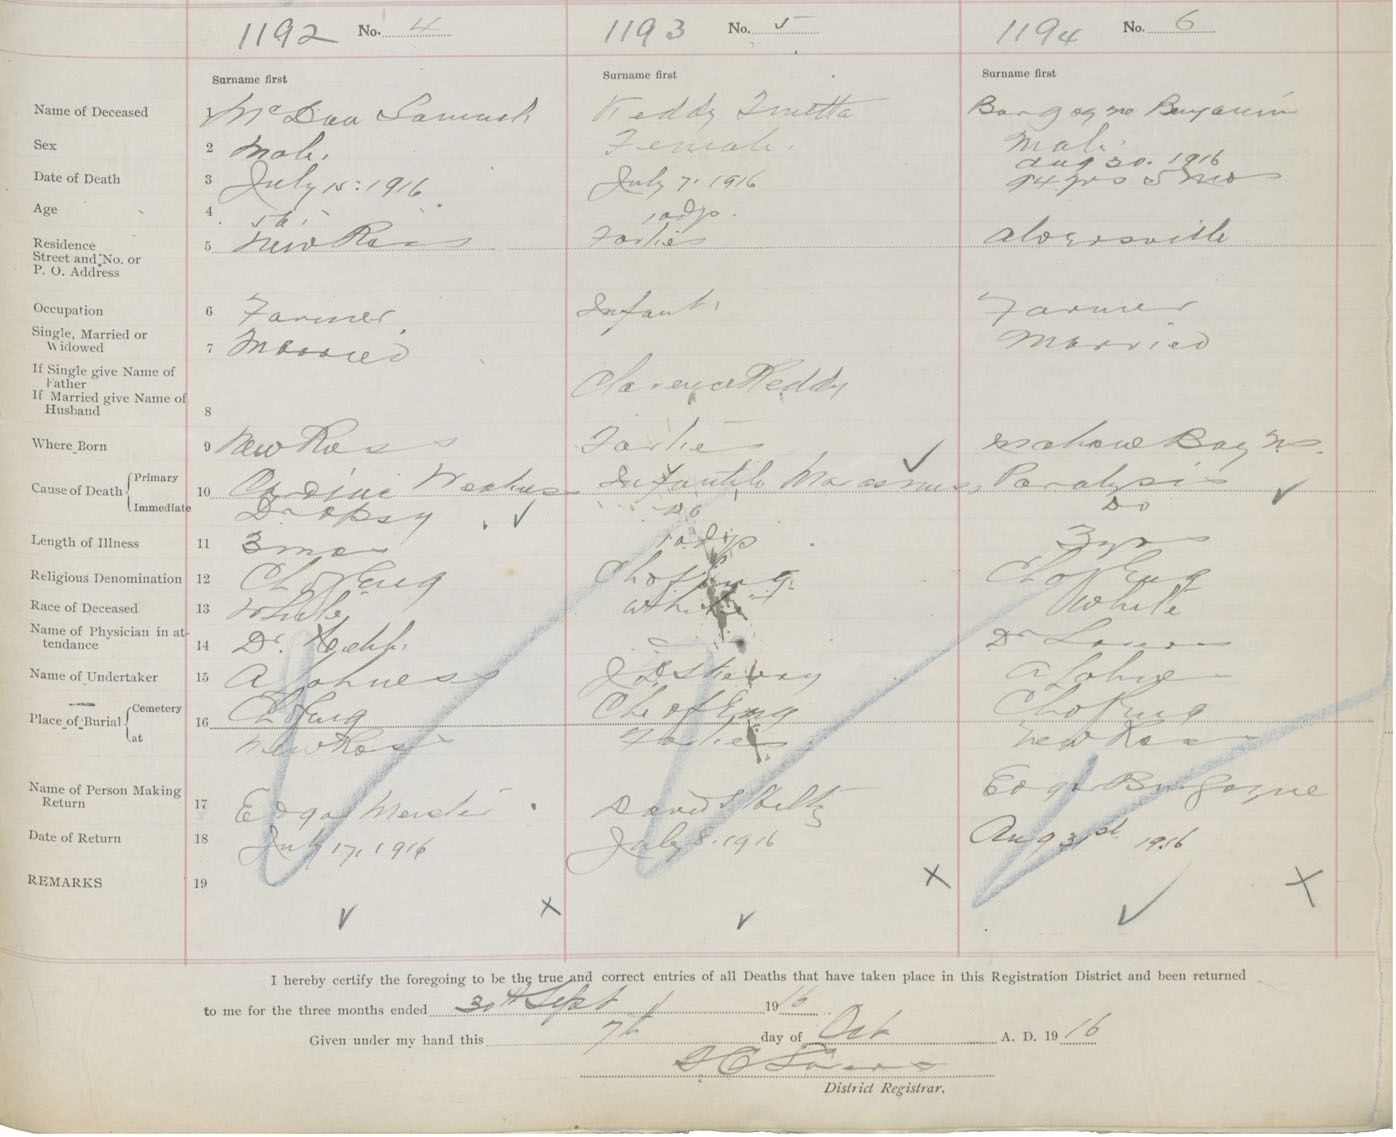 1192 No. 4 1193 No. 5 1194 No. 6
Surname first Surname first Surname first
Name of Deceased 1 Samuel Reddy Burgoyne Benjamin
Sex 2 Male. Female. Male.
Date of Death 3 July 15: 1916 July 7. 1916 Aug 30. 1916
Age 4 10 dys. 5 mos
Residence 5 New Ross Forties Aldersville
Street and No. or
P. O. Address
Occupation 6 Farmer Infant. Farmer
Single, Married or
Widowed 7 Married Married
If Single give Name of
Father Clarence Reddy
If Married give Name of
Husband 8
Where Born 9 New Ross Forties Mahone Bay N.S.
Cause of Death Primary 10 Cardiac Weakness Infantile Marasmus. Paralysis
Immediate Dropsy Do Do
Length of Illness 11 3 mos 10 dys 3 yrs
Religious Denomination 12 Ch of Eng Ch of Eng Ch of Eng
Race of Deceased 13 White White White
Name of Physician in at-
tendance 14 Dr. Dr
Name of Undertaker 15 A J D Skerry A
Place of Burial Cemetery 16 Ch of Eng Ch of Eng Ch of Eng
at New Ross Forties New Ross
Name of Person Making
Return 17 Edgar Meister David Edgar Burgoyne
Date of Return 18 July 17, 1916 July 8. 1916 Aug 31st 1916
REMARKS 19
I hereby certify the foregoing to be the true and correct entries of all Deaths that have taken place in this Registration District and been returned
to me for the three months ended 30th Sept 1916
Given under my hand this 7th day of Oct A. D. 1916
District Registrar.